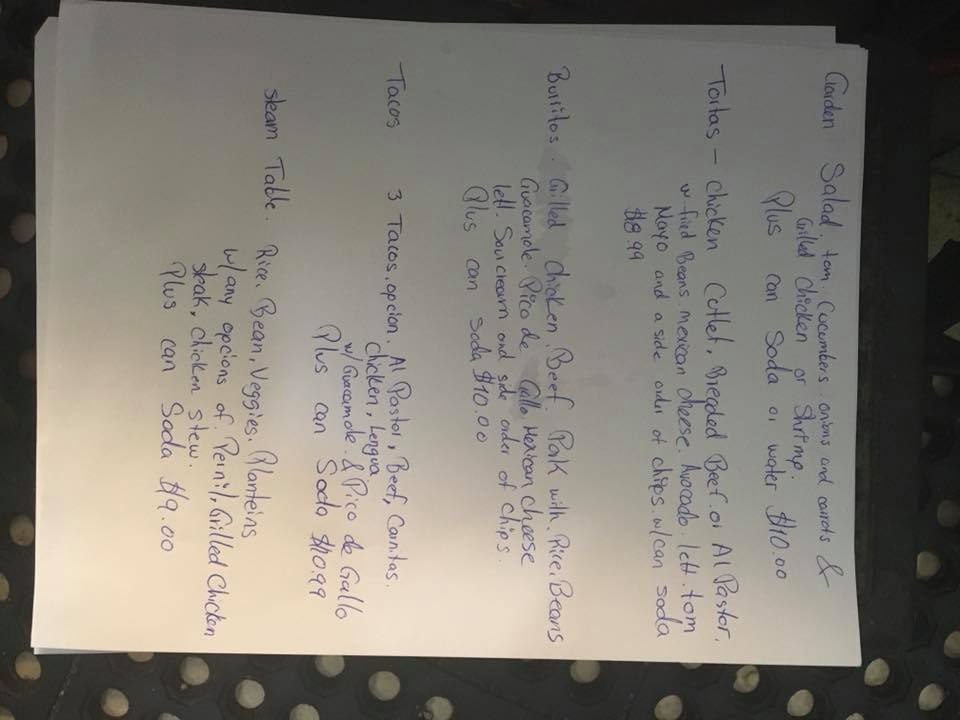 Garden Salad. tom. Cucumbers. onions and carrots &
Grilled chicken or Shrimp.
Plus can Soda or water $10.00
Tortas - chicken Cutlet, Breaded Beef. or Al Pastor.
w-fried Beans. mexican cheese. Avocado. lett. tom
Mayo and a side order of chips. w/can soda
$8.99
Burritos. Grilled chicken. Beef. Pork with. Rice. Beans
Guacamole. Pico de Gallo. Mexican cheese
lett. Sour cream and side order of chips.
Plus can soda $10.00
Tacos 3 Tacos. opcion. Al Pastor, Beef, Carnitas.
chicken, Lengua
w/Guacamole. & Pico de Gallo
Plus can Soda $10.99
steam Table. Rice, Bean, Veggies. Planteins
w/any opcions of. Pernil, Grilled Chicken
steak, chicken stew.
Plus can Soda $9.00